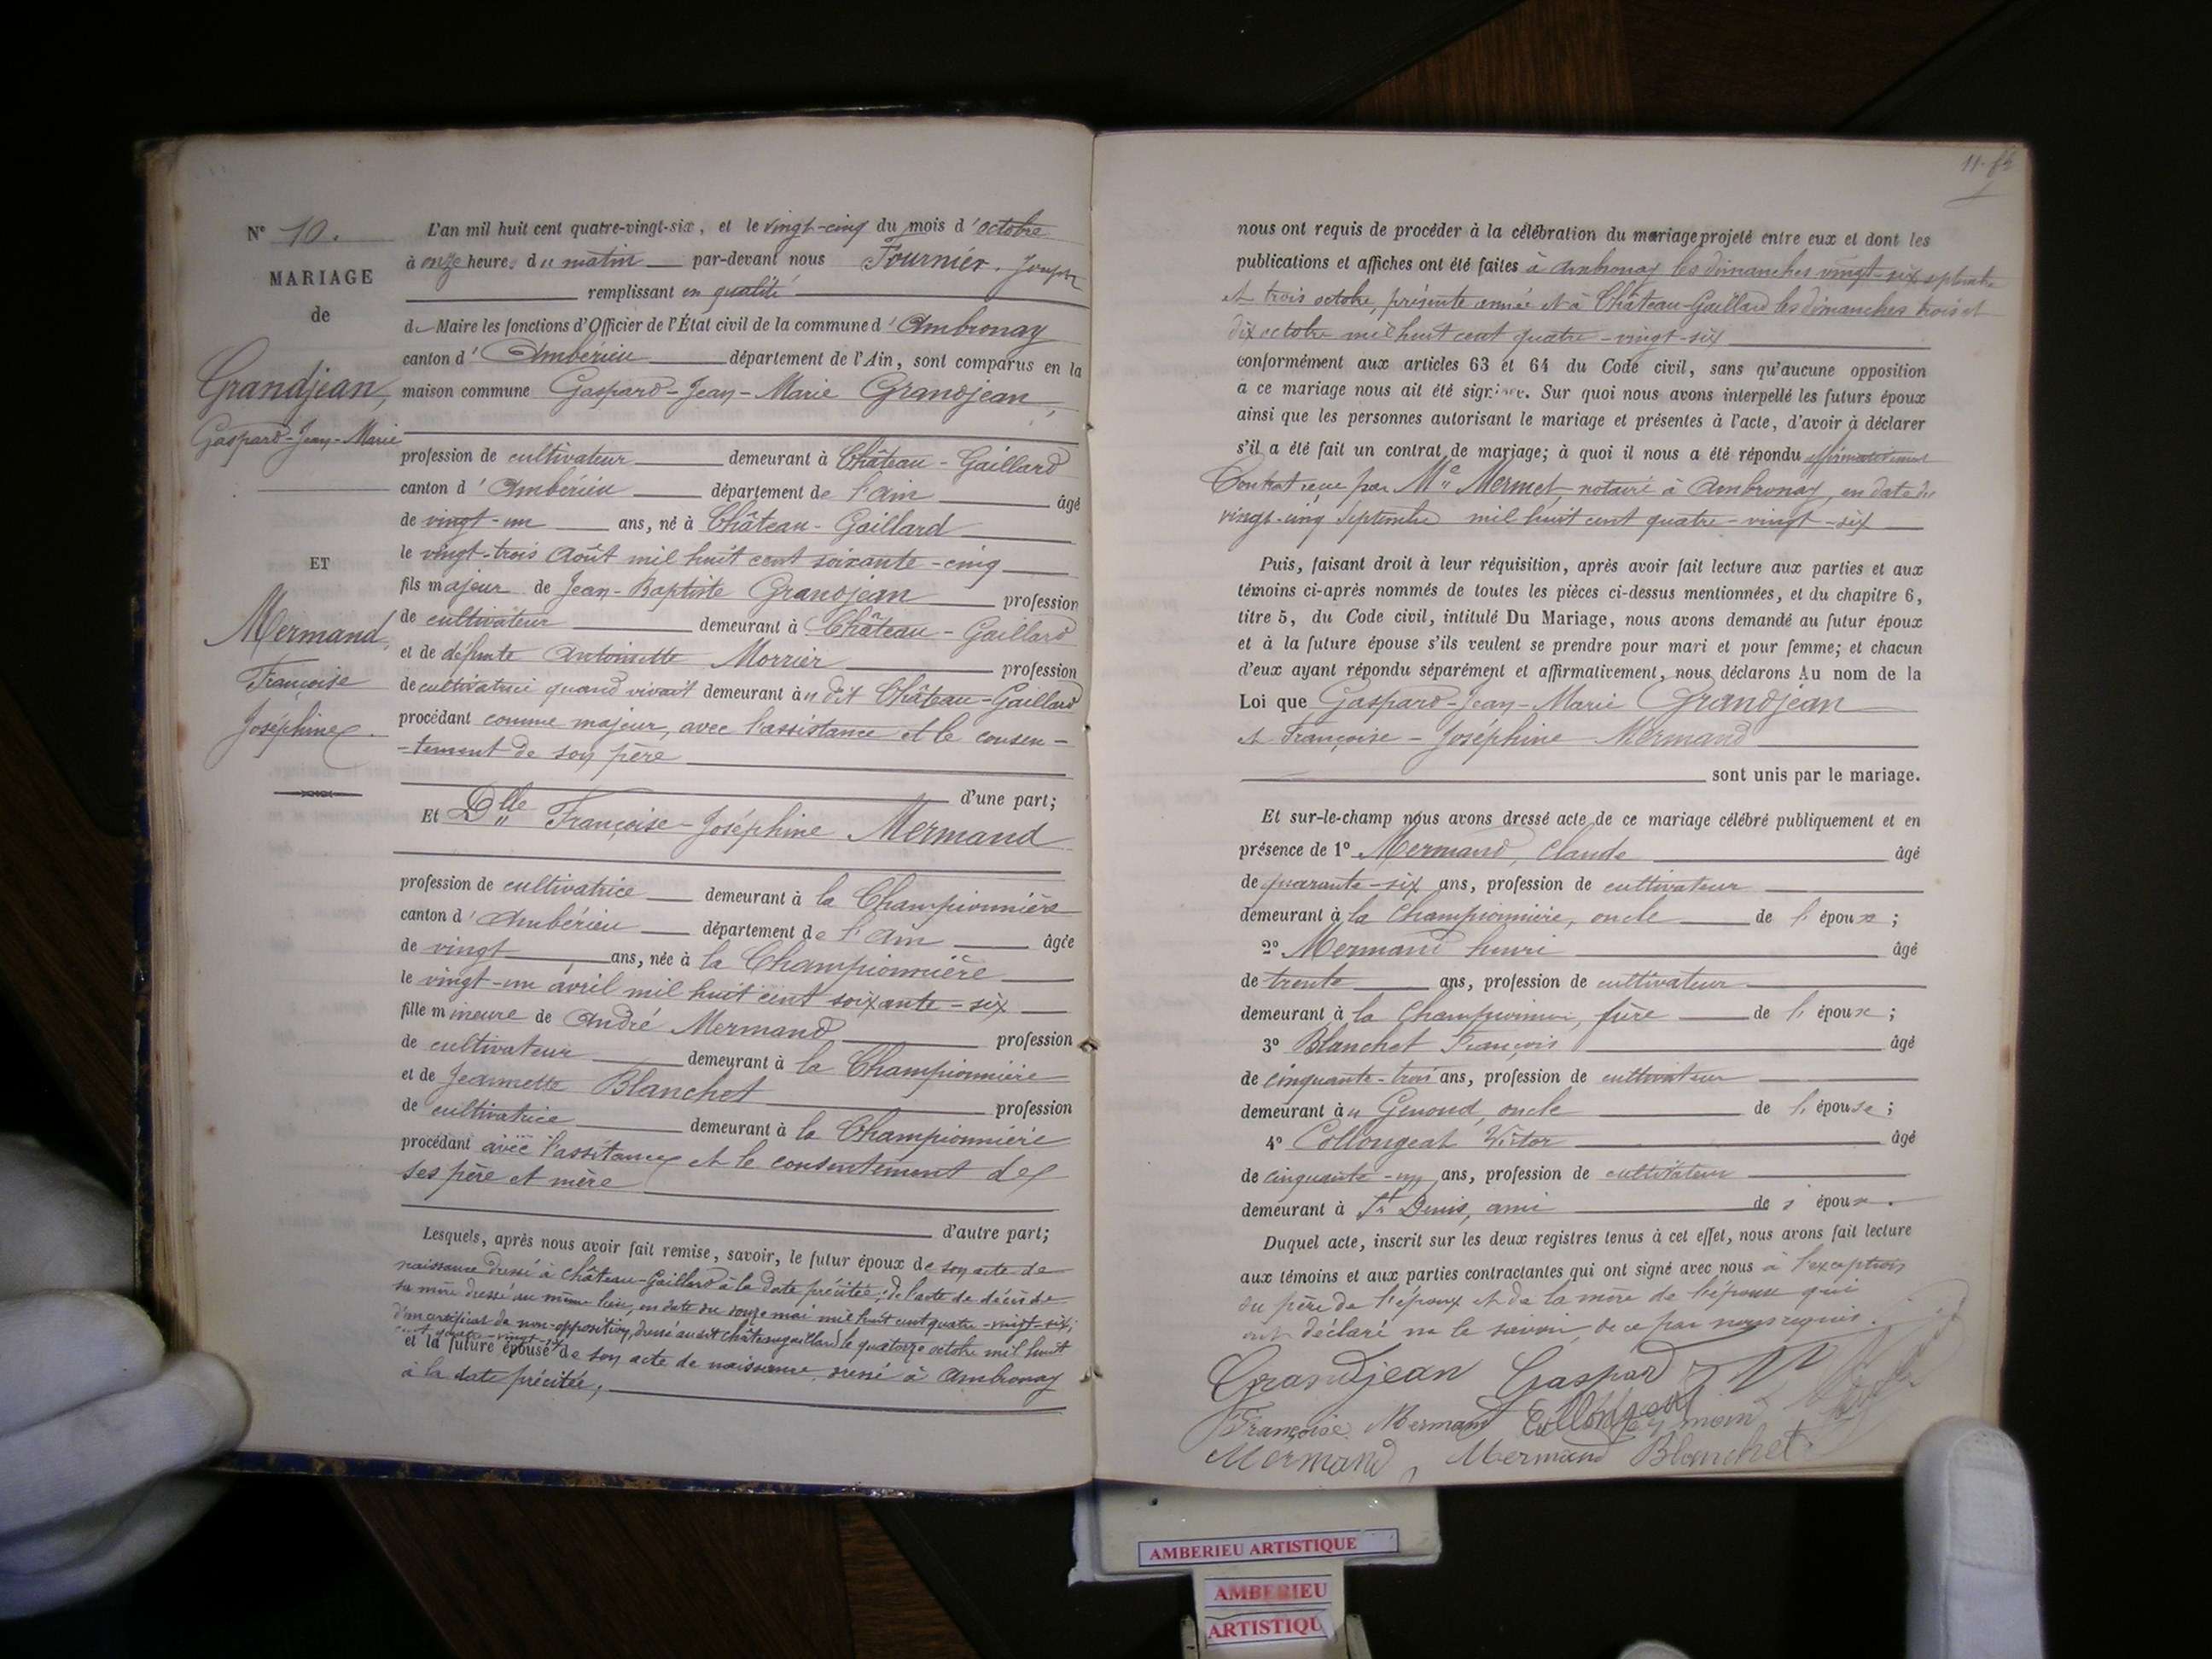 N° 10.
MARIAGE
de
Grandjean,
Gaspard-Jean-Marie
ET
Mermand,
Françoise
Joséphine.
L'an mil huit cent quatre-vingt-six, et le vingt-cinq du mois d'octobre
à onze heures du matin par-devant nous Fournier, Joseph
remplissant en qualité
de Maire les fonctions d'Officier de l'État civil de la commune d'Ambronay
canton d'Ambérieu département de l'Ain, sont comparus en la
maison commune Gaspard-Jean-Marie Grandjean,
profession de cultivateur demeurant à Château-Gaillard
canton d'Ambérieu département de l'Ain âgé
de vingt-un ans, né à Château-Gaillard
le vingt-trois Août mil huit cent soixante-cinq
fils majeur de Jean-Baptiste Grandjean profession
de cultivateur demeurant à Château-Gaillard
et de défunte Antoinette Morrier profession
de cultivatrice quand vivait demeurant au dit Château-Gaillard
procédant comme majeur, avec l'assistance et le consen-
-tement de son père
d'une part;
Et Dlle Françoise-Joséphine Mermand
profession de cultivatrice demeurant à la Championnière
canton d'Ambérieu département de l'Ain âgée
de vingt ans, née à la Championnière
le vingt-un avril mil huit cent soixante-six
fille mineure de André Mermand profession
de cultivateur demeurant à la Championnière
et de Jeannette Blanchet profession
de cultivatrice demeurant à la Championnière
procédant avec l'assitance et le consentement de
ses père et mère
d'autre part;
Lesquels, après nous avoir fait remise, savoir, le futur époux de son acte de
naissance dressé à Château-Gaillard à la date précitée; de l'acte de décès de
sa mère dressé au même lieu, en date du douze mai mil huit cent quatre-vingt-six;
d'un certificat de non-opposition, dressé au dit châteaugaillard le quatorze octobre mil huit
cent quatre-vingt-six
et la future épouse de son acte de naissance, dressé à Ambronay
à la date précitée,
nous ont requis de procéder à la célébration du mariage projeté entre eux et dont les
publications et affiches ont été faites à Ambronay les dimanches vingt-six septembre
et trois octobre, présente année et à Château-Gaillard les dimanches trois et
dix octobre mil huit cent quatre-vingt-six
conformément aux articles 63 et 64 du Code civil, sans qu'aucune opposition
à ce mariage nous ait été signifiée. Sur quoi nous avons interpellé les futurs époux
ainsi que les personnes autorisant le mariage et présentes à l'acte, d'avoir à déclarer
s'il a été fait un contrat de mariage; à quoi il nous a été répondu affirmativement
Contrat reçu par Me Mermet, notaire à Ambronay, en date du
vingt-cinq Septembre mil huit cent quatre-vingt-six
Puis, faisant droit à leur réquisition, après avoir fait lecture aux parties et aux
témoins ci-après nommés de toutes les pièces ci-dessus mentionnées, et du chapitre 6,
titre 5, du Code civil, intitulé Du Mariage, nous avons demandé au futur époux
et à la future épouse s'ils veulent se prendre pour mari et pour femme; et chacun
d'eux ayant répondu séparément et affirmativement, nous déclarons Au nom de la
Loi que Gaspard-Jean-Marie Grandjean
et Françoise-Joséphine Mermand
sont unis par le mariage.
Et sur-le-champ nous avons dressé acte de ce mariage célébré publiquement et en
présence de 1° Mermand, Claude âgé
de quarante-six ans, profession de cultivateur
demeurant à la Championnière, oncle de l'épouse;
2° Mermand henri âgé
de trente ans, profession de cultivateur
demeurant à la frère de l'épouse;
3° Blanchet François âgé
de cinquante-trois ans, profession de cultivateur
demeurant au Genoud, oncle de l'épouse;
4° Collongeat Victor âgé
de cinquante-un ans, profession de cultivateur
demeurant à St Denis, ami de époux.
Duquel acte, inscrit sur les deux registres tenus à cet effet, nous avons fait lecture
aux témoins et aux parties contractantes qui ont signé avec nous à l'exception
du père de l'époux et de la mère de l'épouse qui
ont déclaré ne le savoir, de ce par nous requis.
Grandjean Gaspard
Françoise Mermand Collongeat
Mermand, Mermand Blanchet
AMBERIEU ARTISTIQUE
AMBERIEU
ARTISTIQU